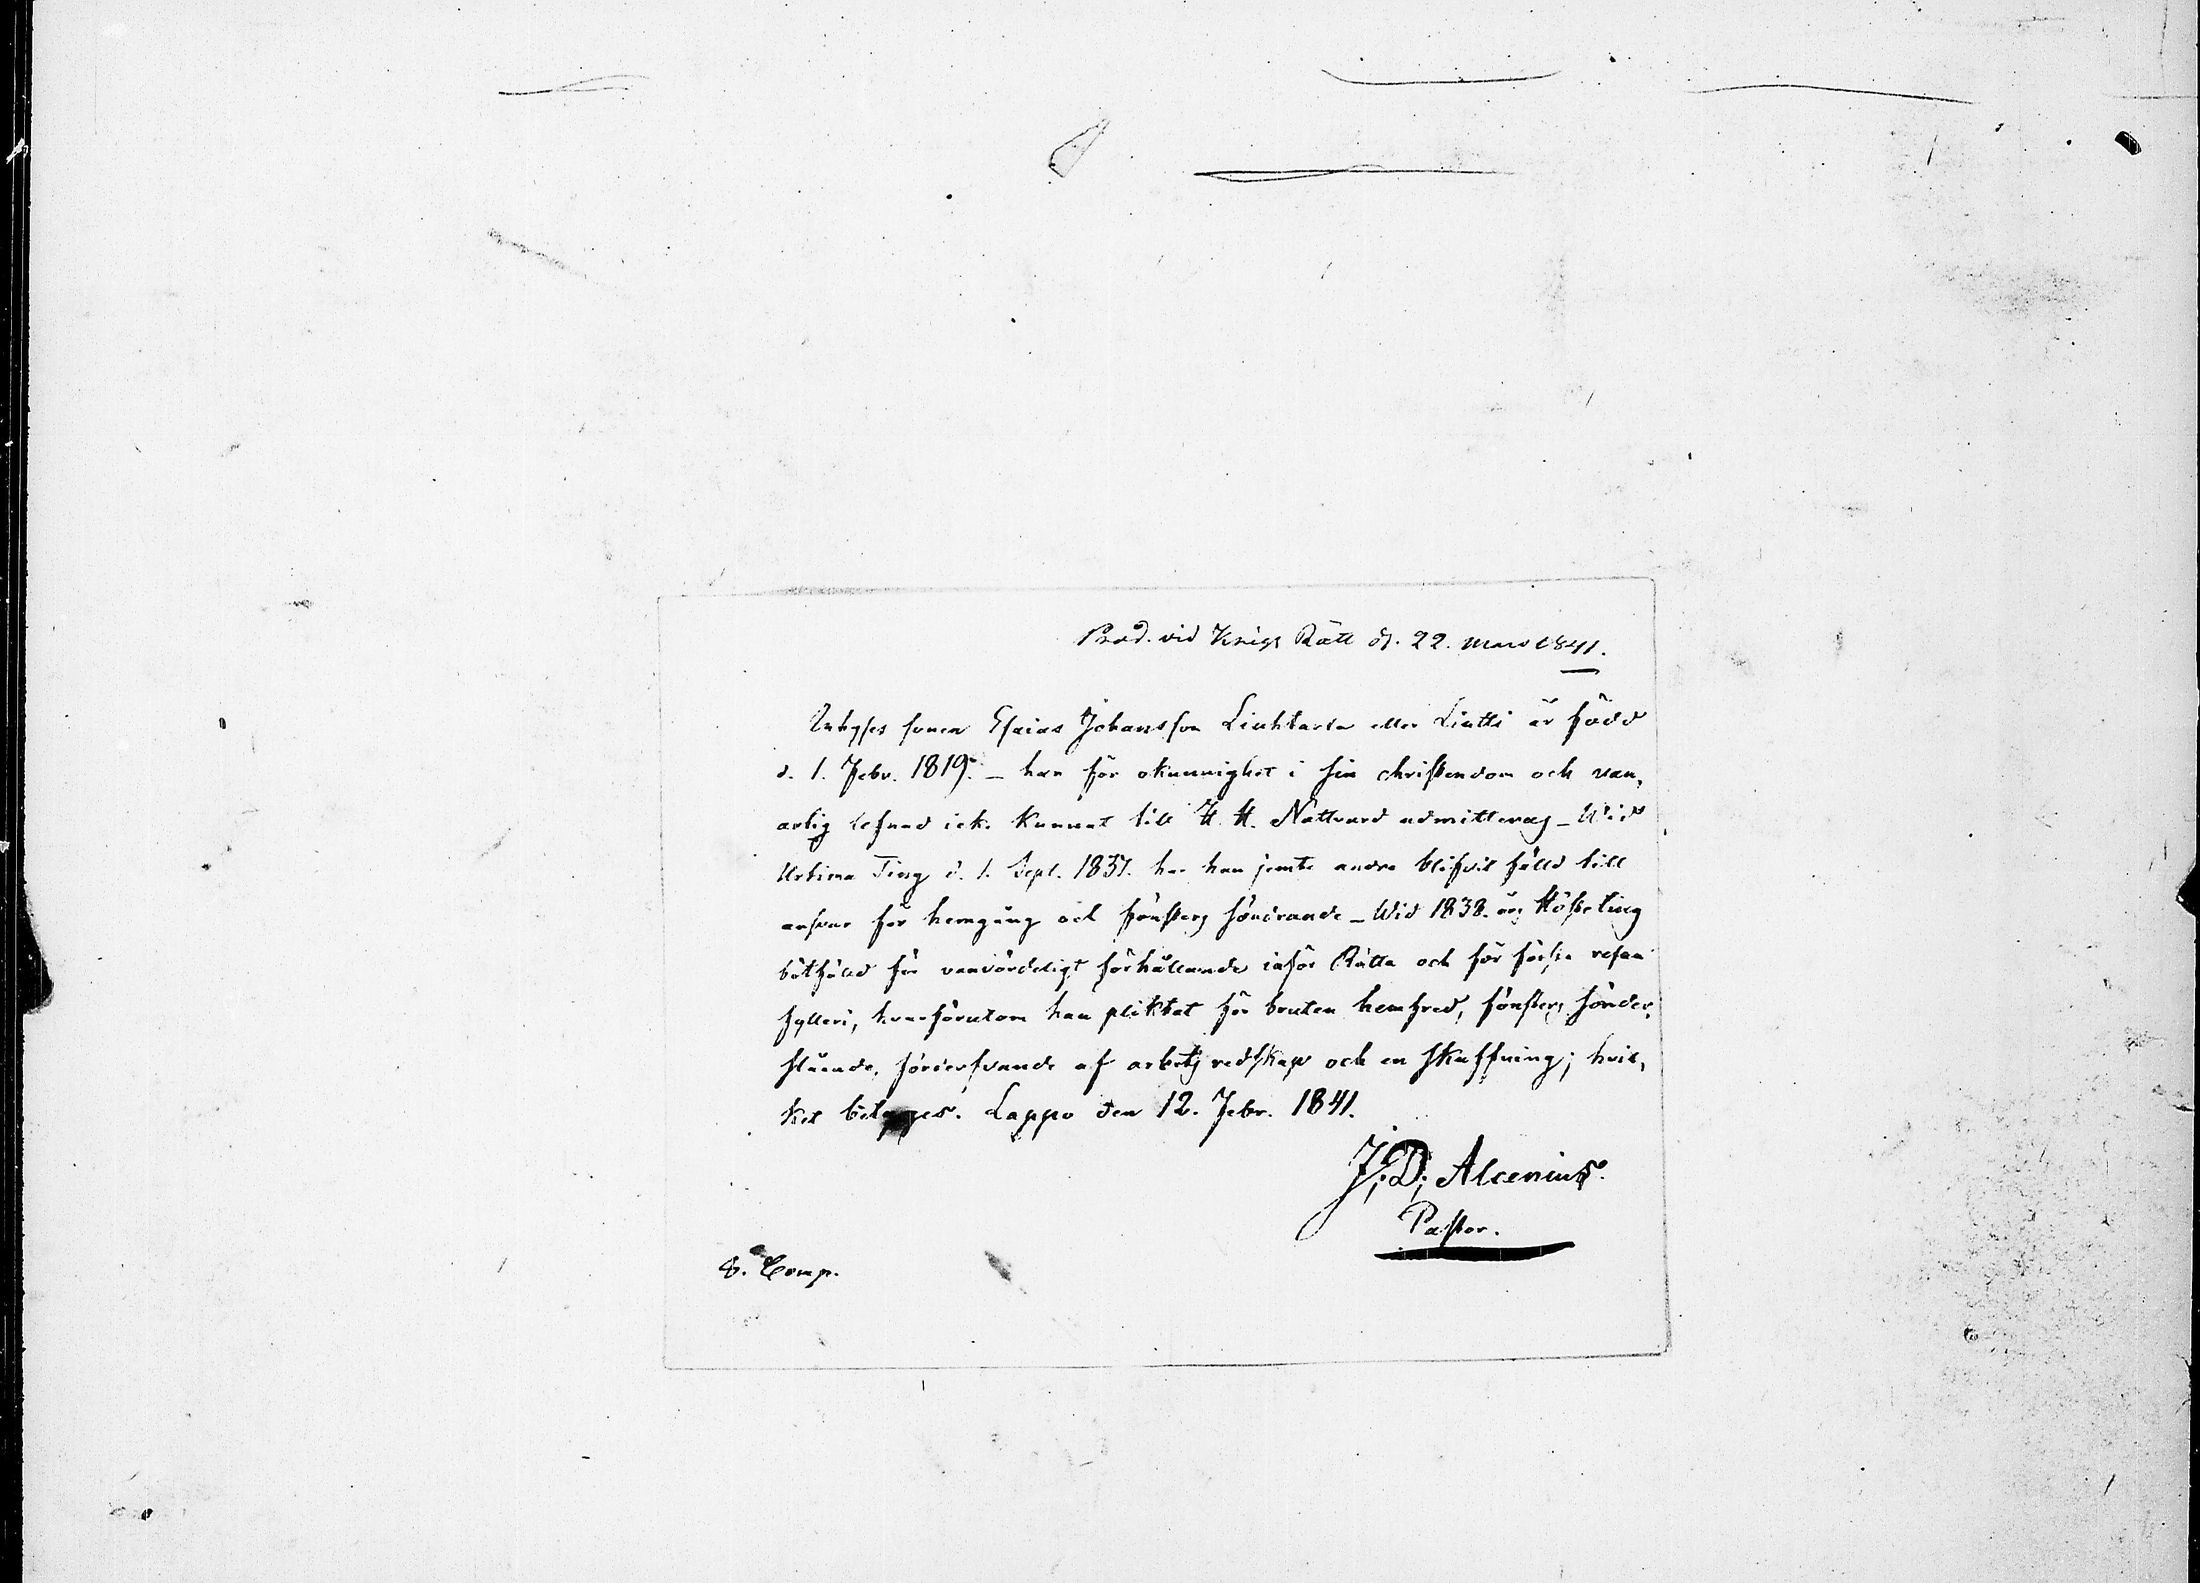 Prod. vid Krigs Rätt d. 22. Mars 1841.
Inhyses sonen Esaias Johansson Liuhtarla eller Liutti är född
d. 1. Febr. 1819. – har för okunnighet i sin christendom och van,
artig lefnad ick. kunnat till H. H. Nattvard admitteras – Wid
Urtima Ting d. 1. Sept. 1837. har han jemte andra blifvit fälld till
ansvar för hemgång och fönsters söndrande – Wid 1838. års Hösteting
bötfälld för vanvördeligt förhållande inför Rätta och för första resan
fylleri, hvarförutom han pliktat för bruten hemfred, fönsters sönder,
slående, förderfvande af arbets redskap och en skuffning; hvil,
ket betyges. Lappo den 12. Febr. 1841.
J. D. Alcenius.
Pastor.
8. Comp.